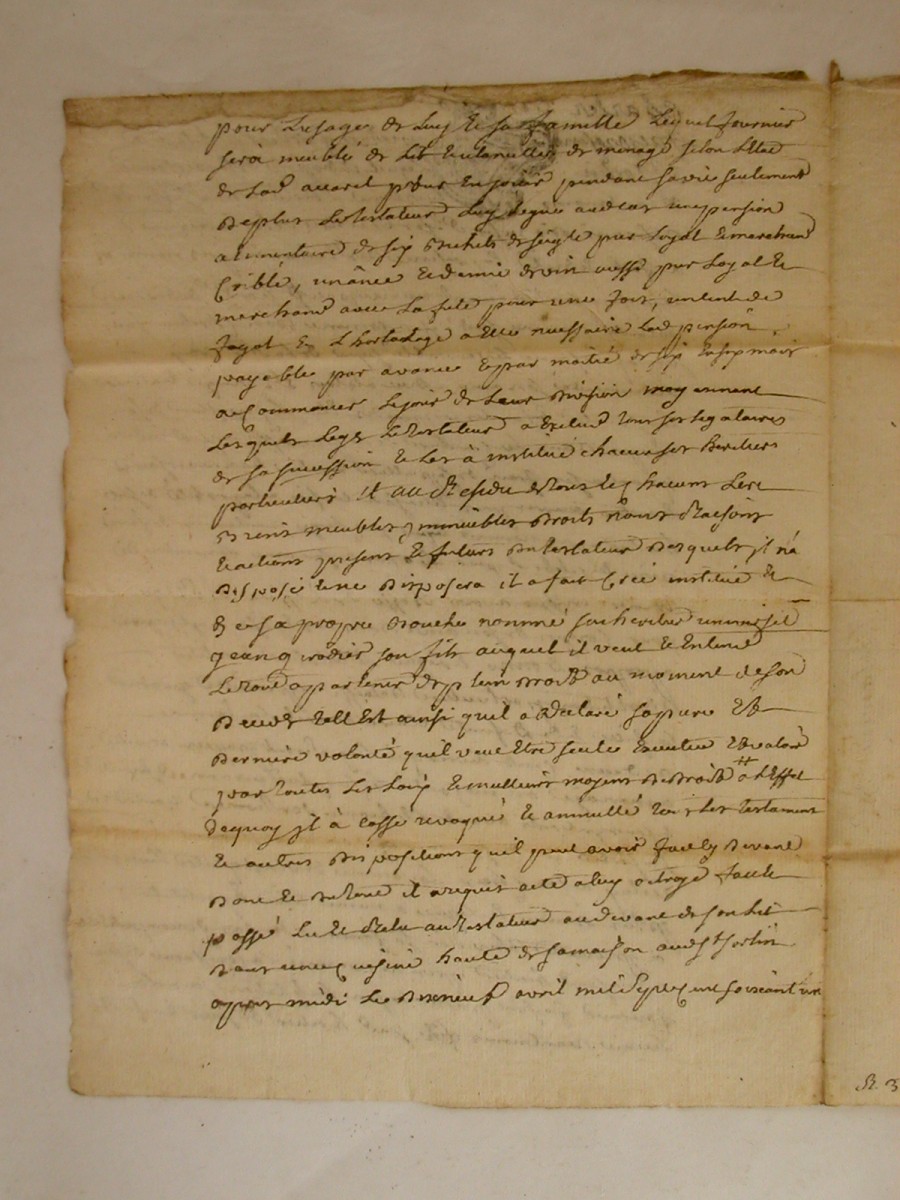 pour Lusage de Luy Et sa famille Lequel fournier
sera meublé de Lit Et ustancilles de menage selon Letat
de Lad pour En jouir pendant sa vie seulement
De plus Le testateur Luy Legue une pension
alimentaire de six Bichets de seigle pur Loyal Et marchand
Criblé, un ânée Et demie de vin aussi pur Loyal Et
marchand avec La futé pour une fois, un cent de
fagot Et L'hortolage a Elle necessaire Lad pension
payable par avance Et par moitié de six En six mois
a Commancer Le jour de Leur Division moyennant
Lesquels Legs Le testateur a Exclud tous ses Legataires
de sa succession Et Les à institué chacun ses heritiers
particuliers Et au Residu de tous Et chacuns Les
Biens meubles immeubles Droits noms Raisons
Et actions presents Et futurs Du testateur Desquels il n'a
Disposé Et ne Disposera il a fait Créé institué Et
de sa propre Bouche nommé son heritier universel
jean son fils auquel il veut Et Entend
Le tout apartenir de plein Droit au moment de son
Deceds Tell Est ainsi quil a Declaré sa pure Et
Derniere volonté quil veut Etre seule Executée Et valoir
par toutes Les Loix Et meilleurs moyens De Droit # a L'effet
Dequoy il à cassé revoqué Et annullé tous Les testament
Et autres Dispositions quil peut avoir fait cy Devant
Dont Et Du tout il a requis acte a luy octroyé fait Et
passé Lu Et Relu au testateur au devant de son Lit
Dans une Cuisine haute de sa maison aud St sorlin
apres midi Le Dixneuf avril mil sept Cent soixant un
R. 3